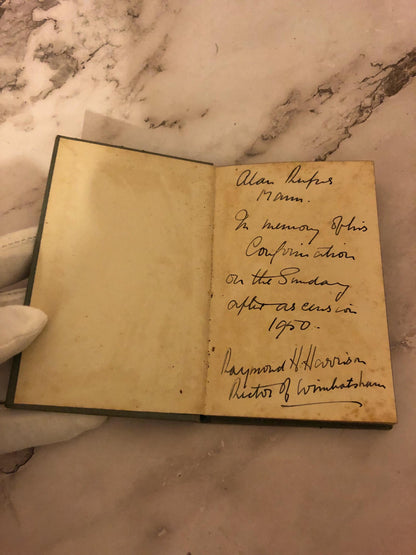 Alan Rufus
Mann.
In memory of his
Confirmation
on the Sunday
after ascension
1950.
Raymond H Harrison
Rector of Wimbotsham